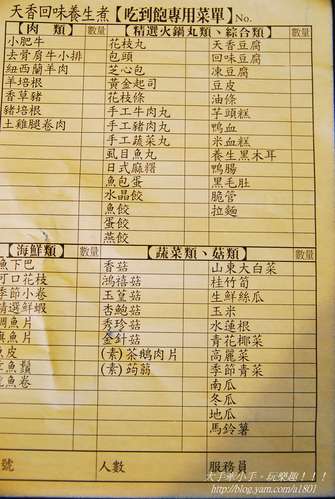 天香回味養生煮【吃到飽專用菜單】No.
【肉類】
數量
【精選火鍋丸類、綜合類】
數量
小肥牛
去骨肩牛小排
紐西蘭羊肉
羊培根
香草豬
豬培根
土雞腿卷肉
花枝丸
包頭
芝心包
黃金起司
花枝條
手工牛肉丸
手工豬肉丸
手工蔬菜丸
虱目魚丸
日式麻糬
魚包蛋
水晶餃
魚餃
蛋餃
燕餃
天香豆腐
回味豆腐
凍豆腐
豆皮
油條
芋頭糕
鴨血
米血糕
養生黑木耳
鴨腸
黑毛肚
脆管
拉麵
【海鮮類】
數量
【蔬菜類、菇類】
數量
魚下巴
可口花枝
季節小卷
精選鮮蝦
鯛魚片
魚片
魚皮
魚鬚
魚卷
香菇
鴻禧菇
玉蕈菇
杏鮑菇
秀珍菇
金針菇
(素)茶鵝肉片
(素)蒟蒻
山東大白菜
桂竹筍
生鮮絲瓜
玉米
水蓮根
青花椰菜
高麗菜
季節青菜
南瓜
冬瓜
地瓜
馬鈴薯
號
人數
服務員
大手牽小手。玩樂趣！！！
http://blog.yam.com/a1801